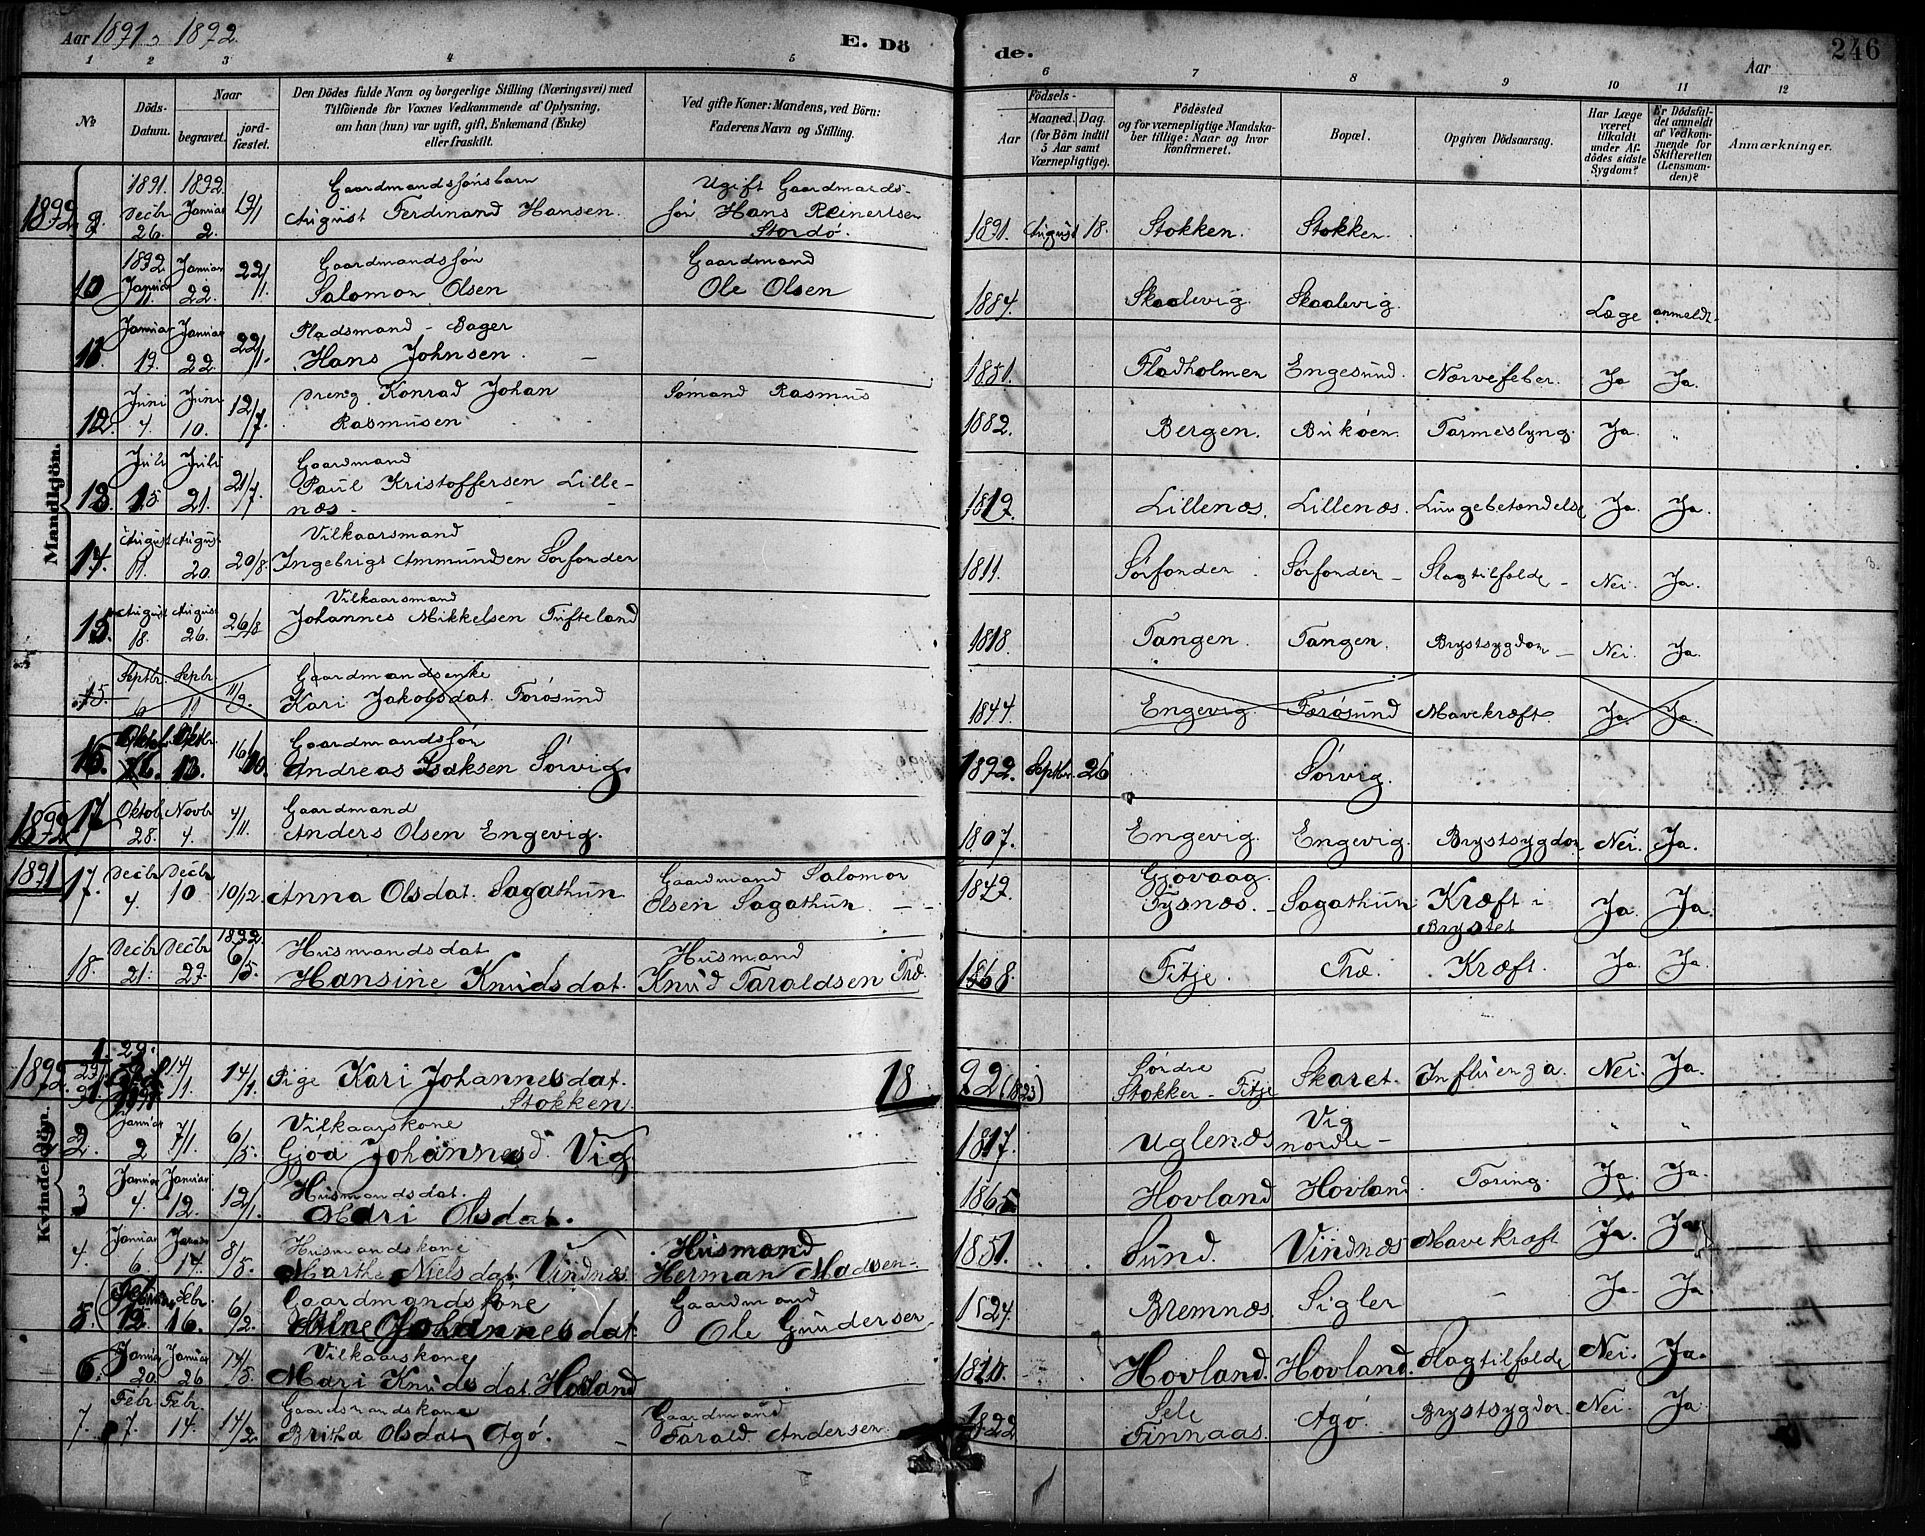 Aar 1891 - 1892.
E. Dö
de.
Aar
246
1 2 3 4 5 6 7 8 9 10 11 12
No
Döds-Datum.
Naar
begravet.
jord-fæstet.
Den Dödes fulde Navn og borgerlige Stilling (Næringsvei) med
Tilföiende for Voxnes Vedkommende af Oplysning,
om han (hun) var ugift, gift, Enkemand (Enke)
eller fraskilt.
Ved gifte Koner: Mandens, ved Börn:
Faderens Navn og Stilling.
Födsels-
Aar
Maaned. Dag.
(for Börn indtil
5 Aar samt
Værnepligtige).
Födested
og for værnepligtige Mandska-
ber tillige: Naar og hvor
konfirmeret.
Bopæl.
Opgiven Dödsaarsag.
Har Læge
været
tilkaldt
under Af-
dödes sidste
Sygdom?
Er Dödsfal-
det anmeldt
af Vedkom-
mende for
Skifteretten
(Lensman-
den)?
Anmærkninger.
Mandkjön.
1892 9. 1891. Decbr 26. 1892. Januar 2. 19/1 Gaardmandssönsbarn
August Ferdinand Hansen. Ugift Gaardmands-
sön Hans Reinertsen
Stordö. 1891. August 18. Stokken. Stokken.
10 1892 Januar 11. Januar 22. 22/1. Gaardmandssön
Salomon Olsen Gaardmand
Ole Olsen 1884. Skaalevig. Skaalevig. Læge anmeldt.
11. Januar 17. Januar 22. 22/1. Pladsmand - Bager
Hans Johnsen. 1851. Fladholmen Engesund. Nervefeber. Ja Ja.
12. Juni 4. Juni 10. 12/7. Dreng Konrad Johan
Rasmusen Sömand Rasmus 1882. Bergen. Buköen. Tarmeslyng. Ja. "
13. Juli 15. Juli 21. 21/7. Gaardmand
Paul Kristoffersen Lille-
næs. 1812. Lillenæs. Lillenæs. Lungebetændelse Ja. Ja.
14. August 11. August 20. 20/8. Vilkaarsmand
Ingebrigt Ammundsen Sörfonder 1811. Sörfonder. Sörfonder - Slagtilfælde - Nei. Ja.
15. August 18. August 26. 26/8 Vilkaarsmand
Johannes Mikkelsen Tufteland 1818. Tangen. Tangen. Brystsygdom Nei. Ja.
15. Septbr. 6 Septbr. 11 11/9. Gaardmandsenke
Kari Jakobsdat. Forösund 1844. Engevig. Færösund Mavekræft. Ja. Ja.
16. 16. 13. 16/10. Gaardmandssön
Andreas Isaksen Sörvig. 1892. Septbr. 26 Sörvig.
1892 17 Oktob. 28. Novbr 4. 4/11. Gaardmand
Anders Olsen Engevig. 1807. Engevig. Engevig. Brystsygdom Nei. Ja.
Kvindekjön.
1891 17. Decbr 4. Decbr 10 10/12 Anna Olsdat. Sagathun Gaardmand Salomon
Olsen Sagathun - - 1842. Gjøvaag
Tysnæs. - Sagathun Kræft i
Brystet Ja. Ja.
18. Decbr 21. Decbr 27. 1892 6/5. Husmandsdat.
Hansine Knudsdat. Husmand
Knud Taraldsen Thæ. 1868. Fitje. Thæ. Kræft. Ja. Ja
1892 1. 29. 14/1. 14/1 Pige Kari Johannesdat.
Stokken. 1822 (1823) Søndre
Stokken - Fitje Skaret. Influenza. Nei. Ja.
2. Januar 2 7/1. 6/5. Vilkaarskone
Gjøa Johannesd. Vig. 1817. Uglenæs Vig
nordre - " "
3 Januar 4. Januar 12. 12/1. Husmandsdat.
Mari Olsdat. 1865 Hovland Hovland. Tæring. Ja. Ja.
4. Januar 6. Januar 14. 8/5. Husmandskone
Marthe Nielsdat. Vindnæs. Husmand
Herman Madsen. 1851. Sund. Vindnæs Mavekræft Ja. Ja
5. 12. Febr. 16. 6/2. Gaardmandskone
Johannesdat. Gaardmand
Ole Gundersen 1824. Bremnæs. Sigler - Ja. Ja.
6. Januar 20. Januar 26 14/5. Vilkaarskone
Mari Knudsdat. Hovland 1810. Hovland. Hovland. Slagtilfælde Nei. Ja.
7. Febr. 7. Febr. 14. 14/2. Gaardmandskone
Britha Olsdat. Agö. Gaardmand
Tarald. Andersen. 1822 Sele
Finnaas. Agö. Brystsygdom. Nei. Ja